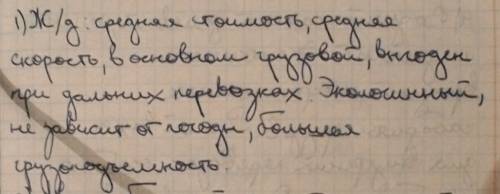 1) Ж/д: средняя стоимость, средняя
скорость, в основном грузовой, выгоден
при дальних перевозках. Экологичный,
не зависит от погоды, большая
грузоподъемность.